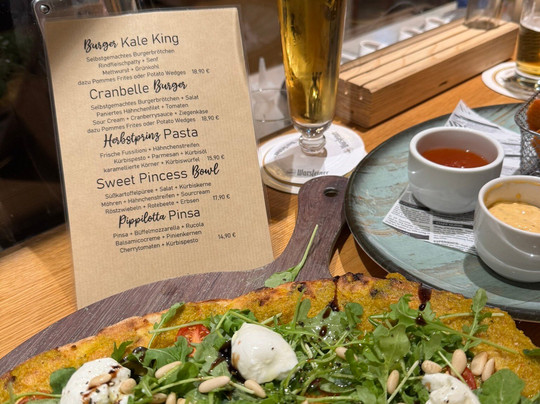 Burger Kale King
Selbstgemachtes Burgerbrötchen
Rindfleischpatty + Senf
Mettwurst + Grünkohl
dazu Pommes Frites oder Potato Wedges 18,90 €
Cranbelle Burger
Selbstgemachtes Burgerbrötchen + Salat
Paniertes Hähnchenfilet + Tomaten
Sour Cream + Cranberrysauce + Ziegenkäse
dazu Pommes Frites oder Potato Wedges 18,90 €
Herbstprinz Pasta
Frische Fussilloni + Hähnchenstreifen
Kürbispesto + Parmesan + Kürbisöl
karamellisierte Körner + Kürbiswürfel 15,90 €
Sweet Pincess Bowl
Süßkartoffelpüree + Salat + Kürbiskerne
Möhren + Hähnchenstreifen + Sourcream
Röstzwiebeln + Rotebeete + Erbsen 17,90 €
Pippilotta Pinsa
Pinsa + Büffelmozzarella + Rucola
Balsamicocreme + Pinienkernen
Cherrytomaten + Kürbispesto 14,90 €